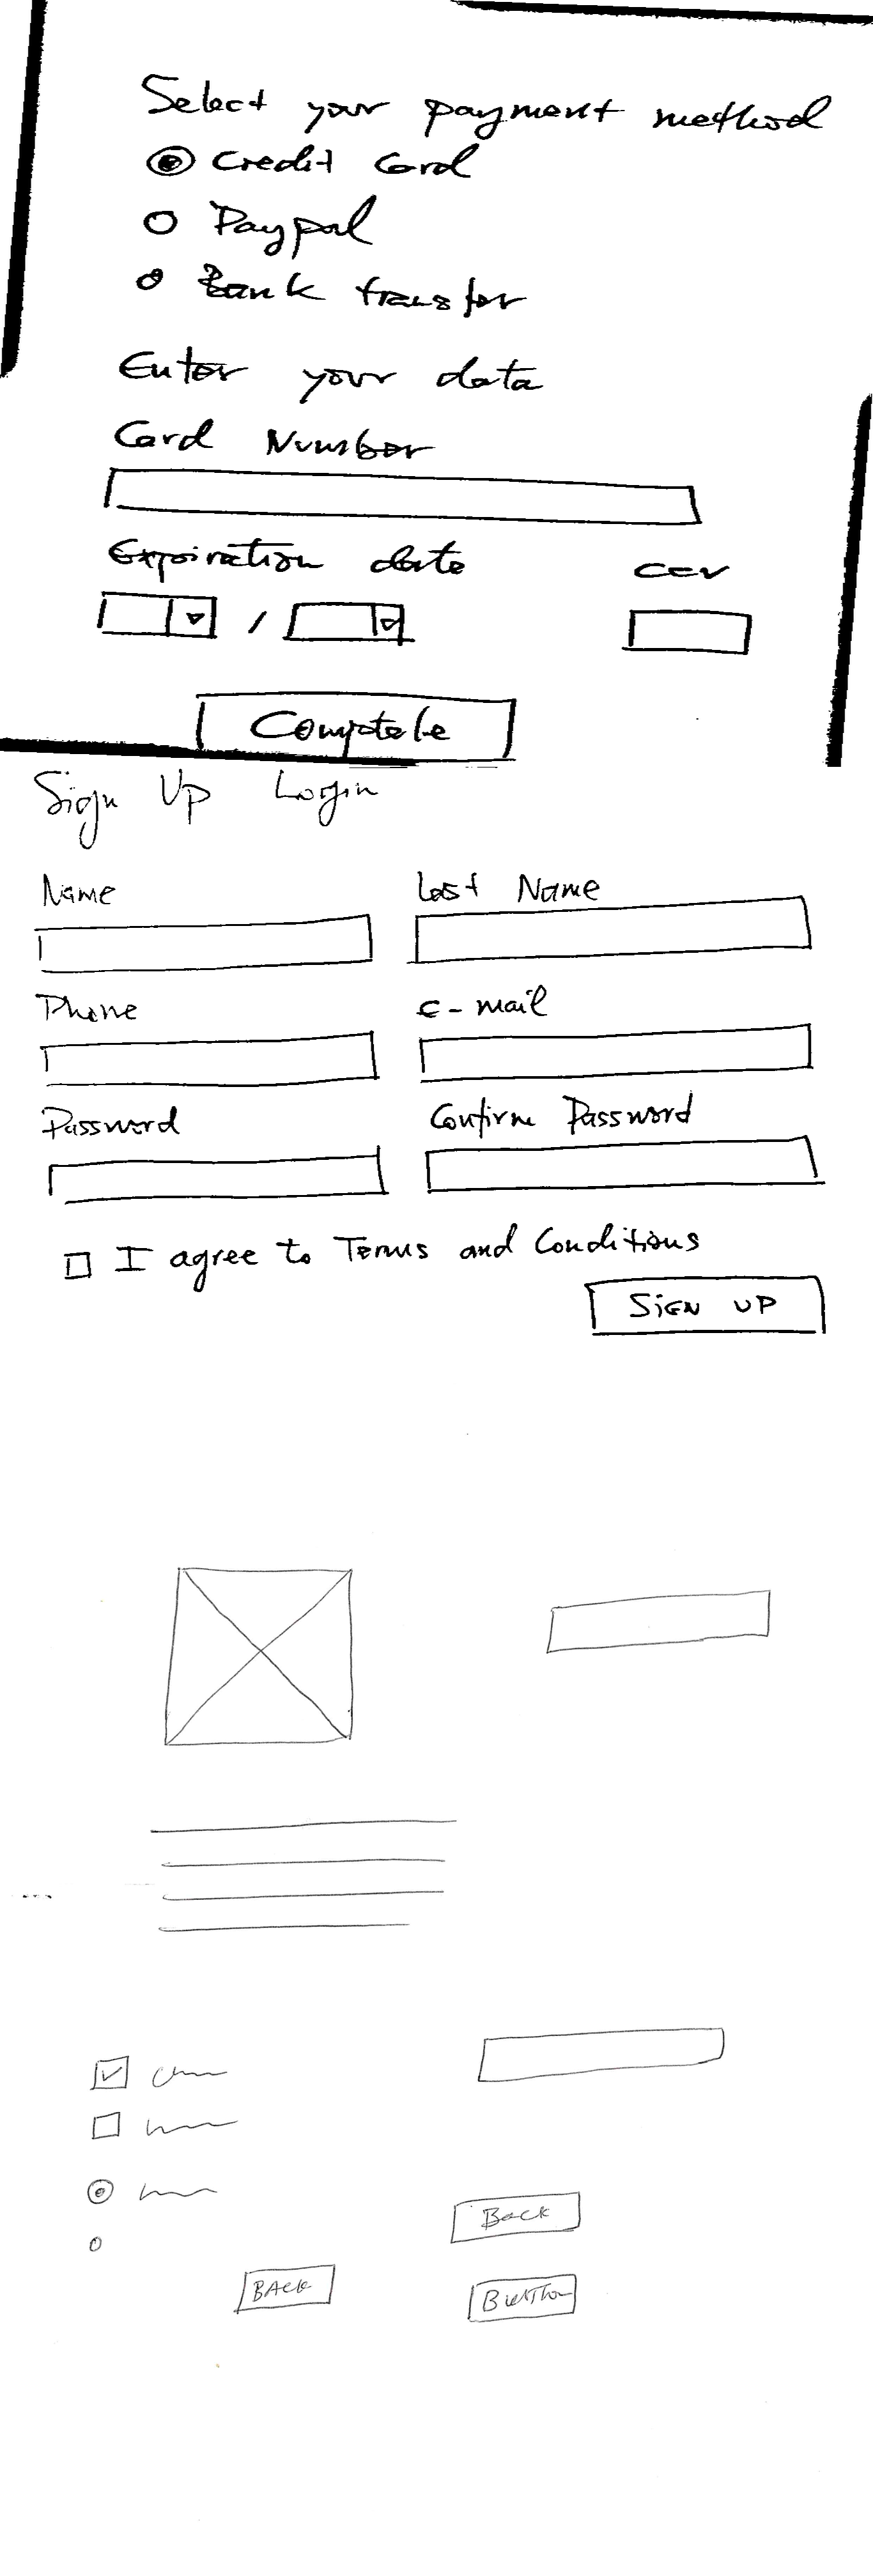 Select your payment method
Credit Card
Paypal
Bank transfer
Enter your data
Card Number
Expiration date ccv
/
Complete
Sign Up Login
Name Last Name
Phone e-mail
Password Confirm Password
I agree to Terms and Conditions
SIGN UP
Back
BACK
Button